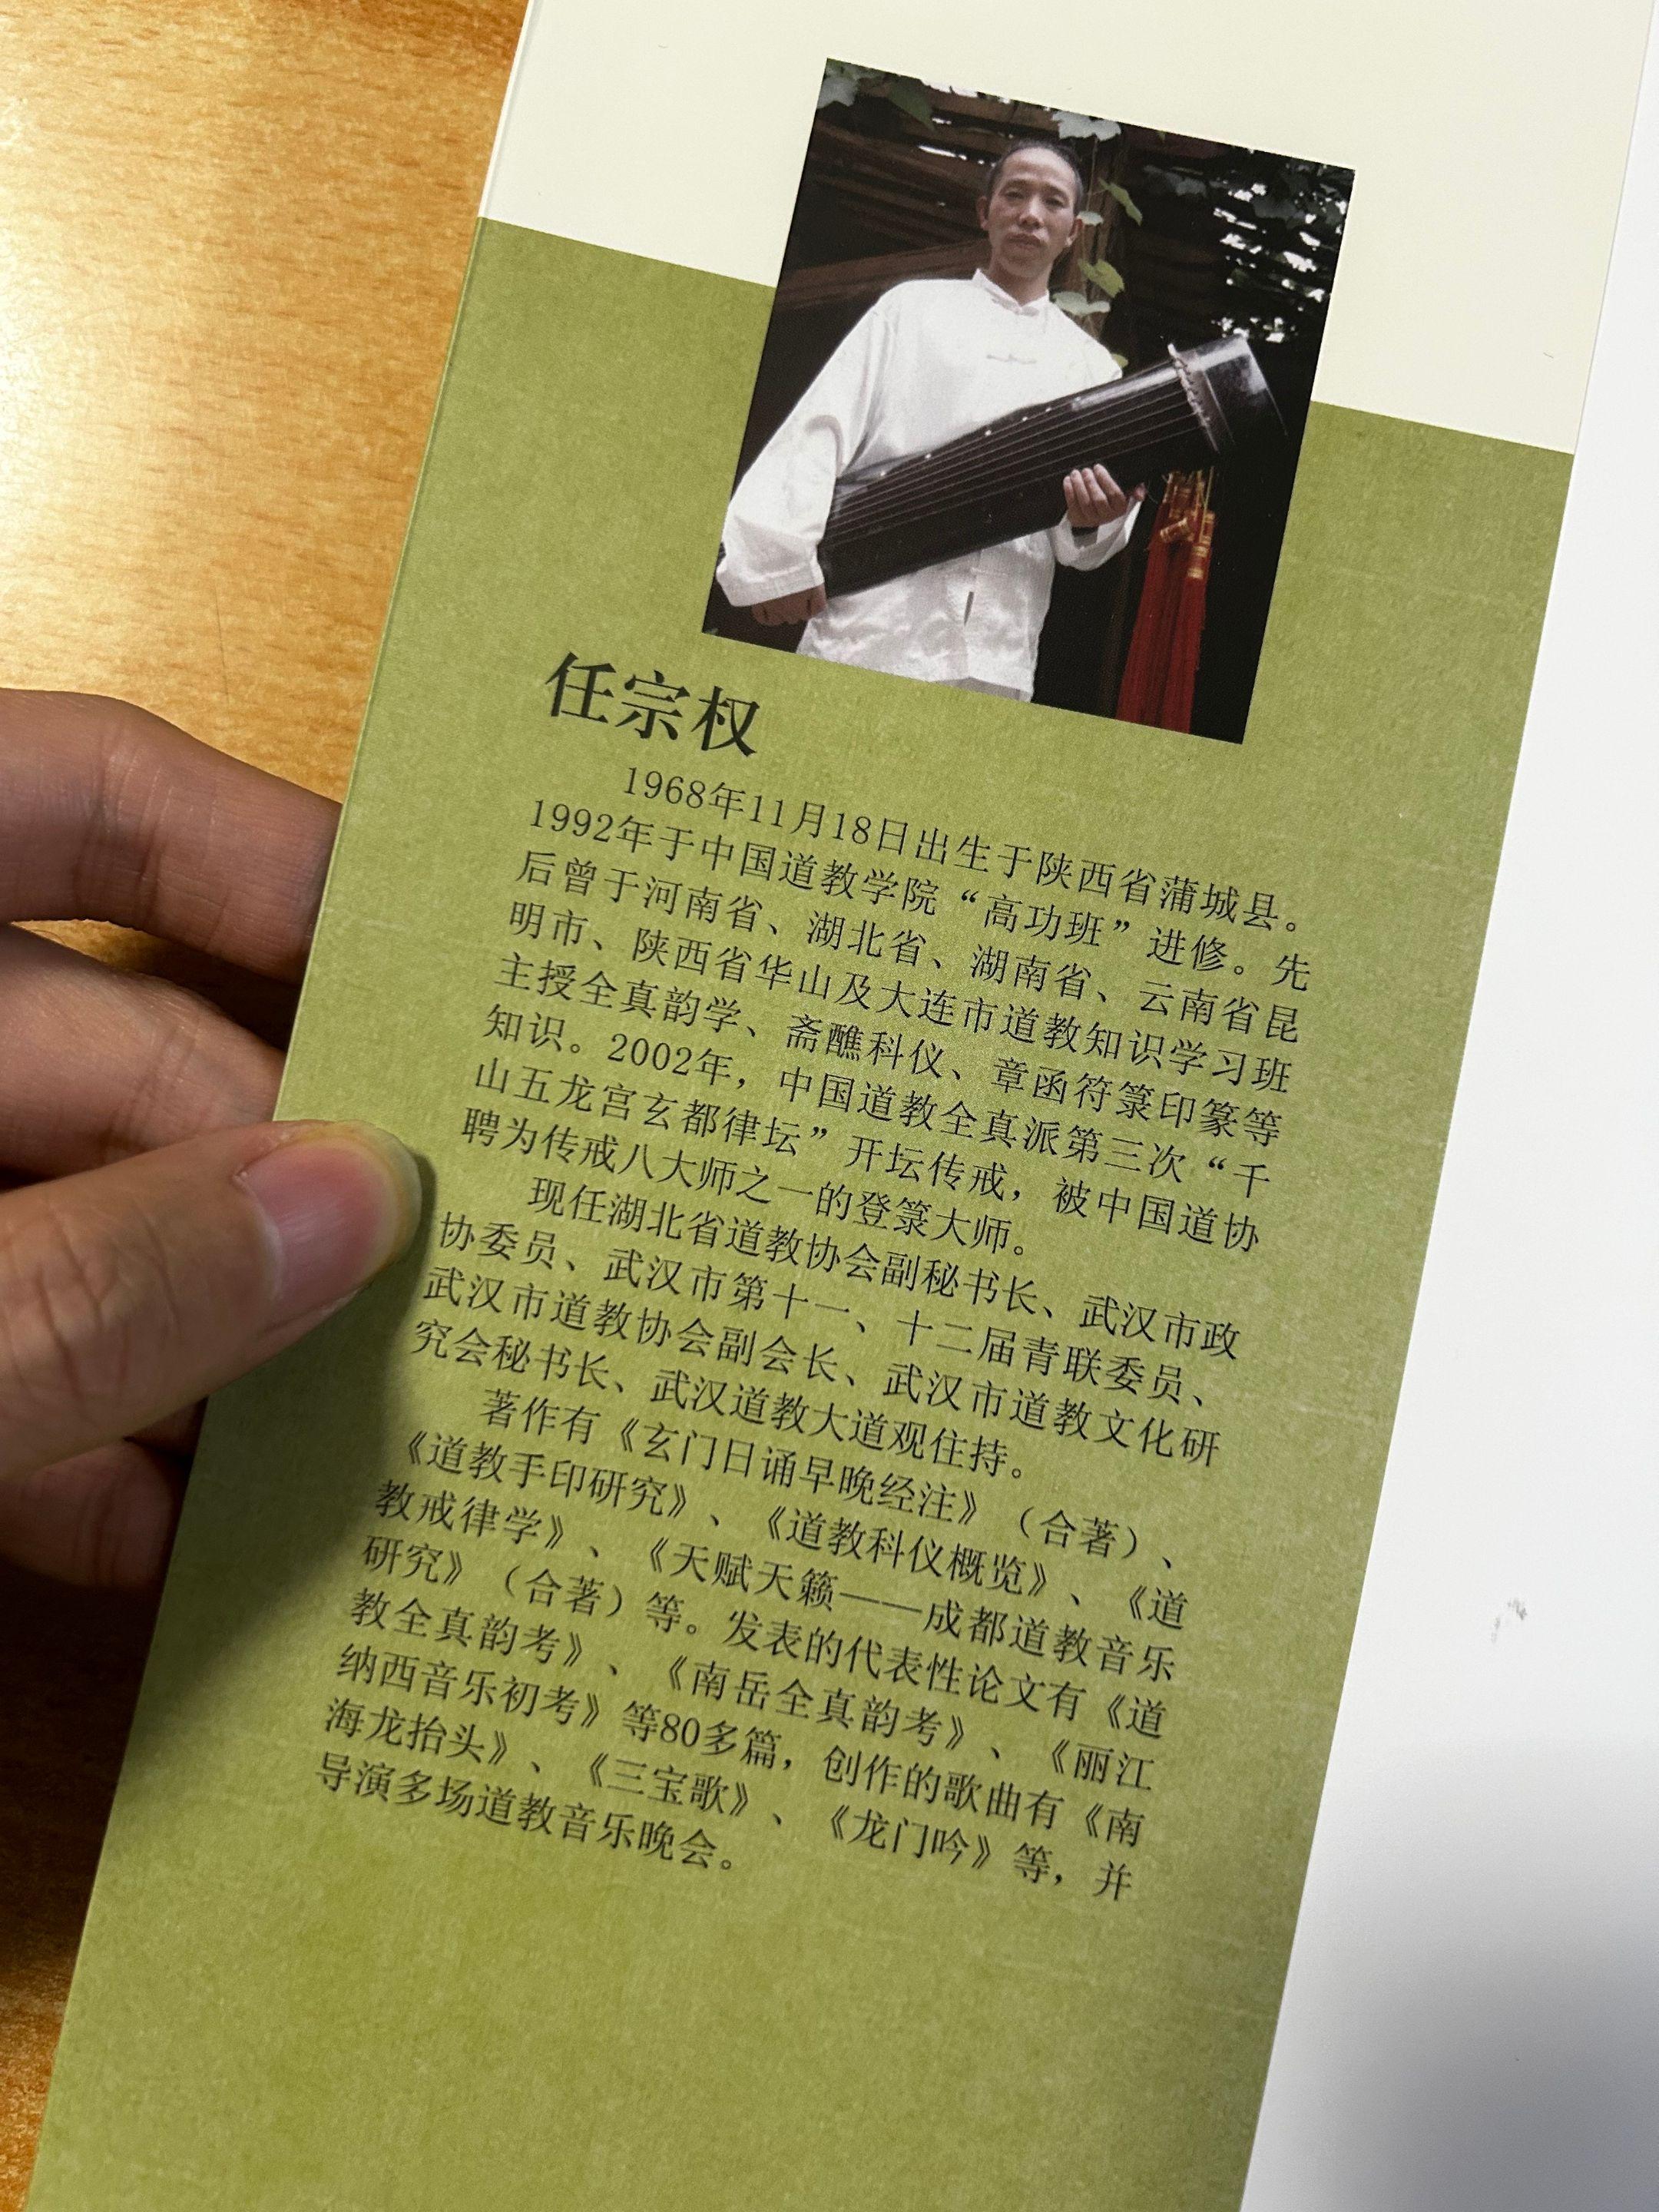 任宗权
1968年11月18日出生于陕西省蒲城县。
1992年于中国道教学院“高功班”进修。先
后曾于河南省、湖北省、湖南省、云南省昆
明市、陕西省华山及大连市道教知识学习班
主授全真韵学、斋醮科仪、章函符箓印篆等
知识。2002年，中国道教全真派第三次“千
山五龙宫玄都律坛”开坛传戒，被中国道协
聘为传戒八大师之一的登箓大师。
现任湖北省道教协会副秘书长、武汉市政
协委员、武汉市第十一、十二届青联委员、
武汉市道教协会副会长、武汉市道教文化研
究会秘书长、武汉道教大道观住持。
著作有《玄门日诵早晚经注》（合著）、
《道教手印研究》、《道教科仪概览》、《道
教戒律学》、《天赋天籁——成都道教音乐
研究》（合著）等。发表的代表性论文有《道
教全真韵考》、《南岳全真韵考》、《丽江
纳西音乐初考》等80多篇，创作的歌曲有《南
海龙抬头》、《三宝歌》、《龙门吟》等，并
导演多场道教音乐晚会。